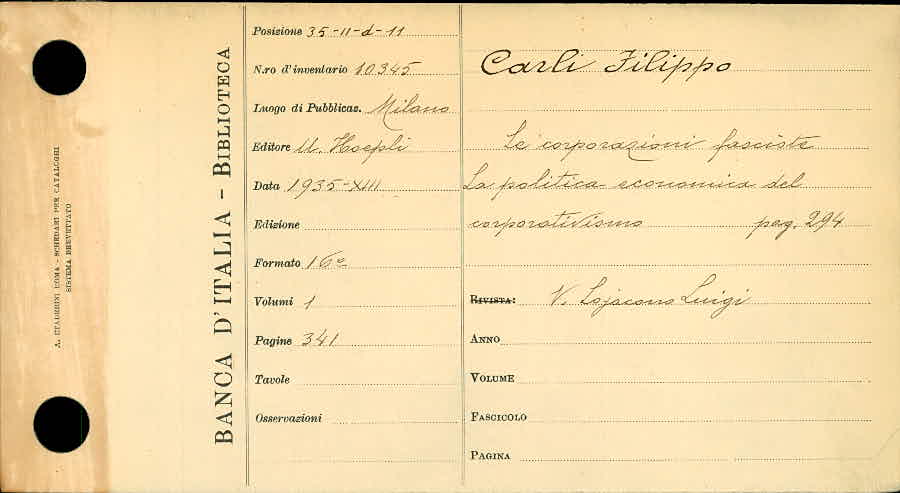 A. STADERINI ROMA - SCHEDARI PER CATALOGHI
SISTEMA BREVETTATO
BANCA D'ITALIA - BIBLIOTECA
Posizione 35-II-d-11
N.ro d'inventario 10345
Luogo di Pubblicaz. Milano
Editore U. Hoepli
Data 1935-XIII
Edizione
Formato 16°
Volumi 1
Pagine 341
Tavole
Osservazioni
Carli Filippo
Le corporazioni fasciste
La politica economica del
corporativismo pag. 294
RIVISTA: V. Lojacono Luigi
ANNO
VOLUME
FASCICOLO
PAGINA